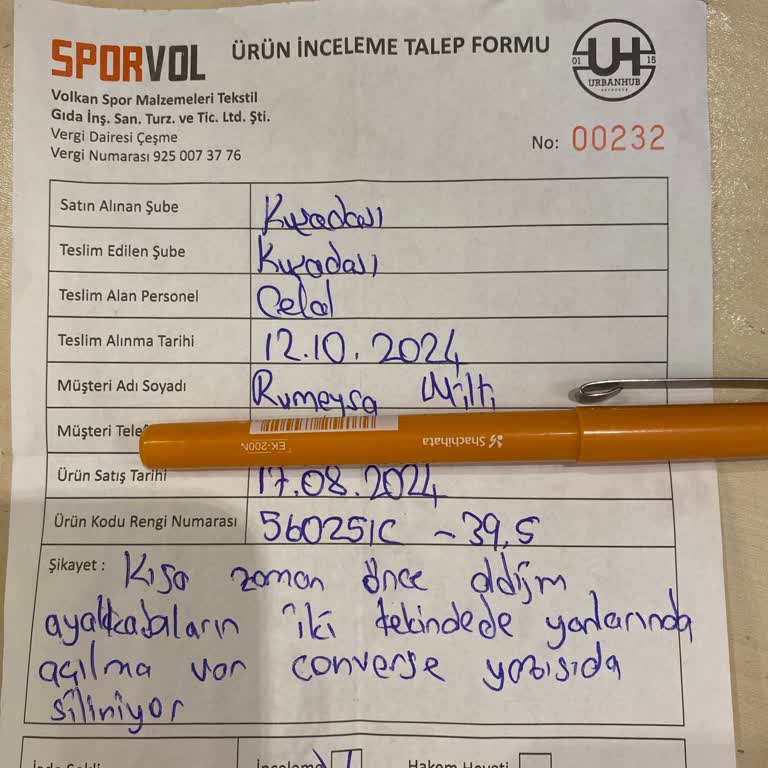 SPORVOL
ÜRÜN İNCELEME TALEP FORMU
01 UH 15
URBANHUB
Volkan Spor Malzemeleri Tekstil
Gıda İnş. San. Turz. ve Tic. Ltd. Şti.
Vergi Dairesi Çeşme
Vergi Numarası 925 007 37 76
No: 00232
Satın Alınan Şube Kuşadası
Teslim Edilen Şube Kuşadası
Teslim Alan Personel Celal
Teslim Alınma Tarihi 12.10.2024
Müşteri Adı Soyadı Rumeysa
Müşteri
EK-200N Shachihata
Ürün Satış Tarihi 17.08.2024
Ürün Kodu Rengi Numarası 560251C - 39,5
Şikayet : Kısa zaman önce aldığım
ayakkabıların iki tekindede yanlarında
açılma var converse yazısıda
siliniyor
İade Şekli İnceleme Hakem Heyeti